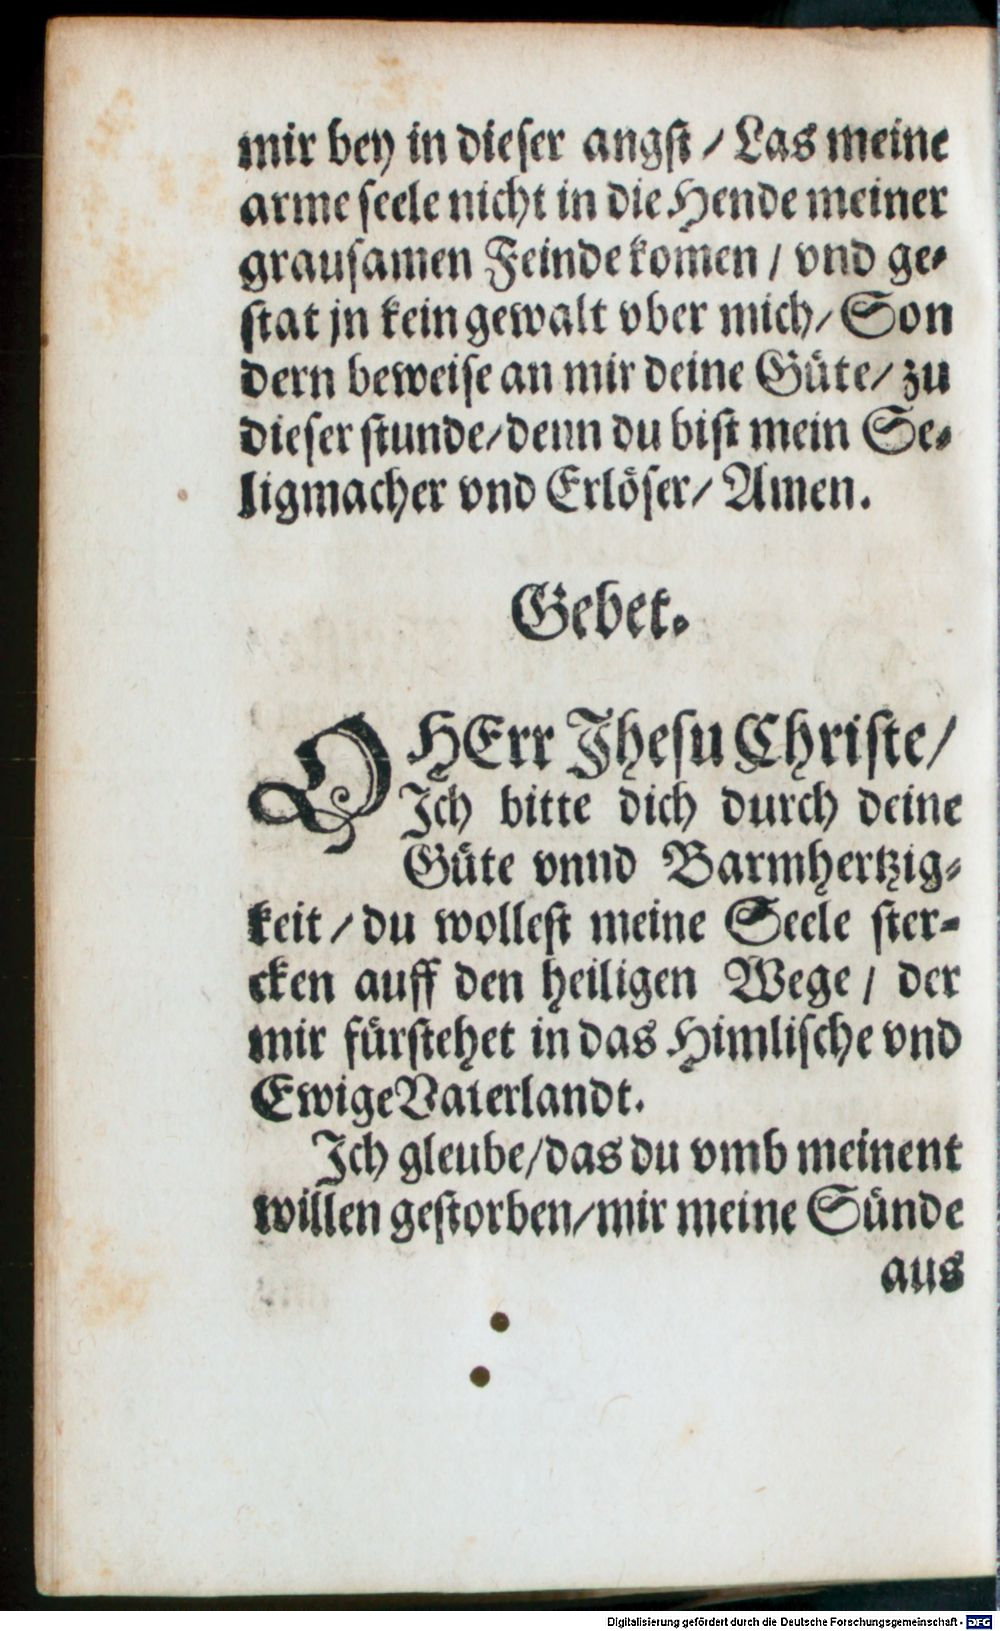 mir bey in dieser angst / Las meine
arme seele nicht in die Hende meiner
grausamen Feinde komen / vnd ge-
stat jn kein gewalt vber mich / Son
dern beweise an mir deine Güte / zu
dieser stunde / denn du bist mein Se-
ligmacher vnd Erlöser / Amen.
Gebet.
O HErr Jhesu Christe /
Ich bitte dich durch deine
Güte vnnd Barmhertzig-
keit / du wollest meine Seele ster-
cken auff den heiligen Wege / der
mir fürstehet in das Himlische vnd
Ewige Vaterlandt.
Ich gleube / das du vmb meinent
willen gestorben / mir meine Sünde
aus
Digitalisierung gefördert durch die Deutsche Forschungsgemeinschaft - DFG